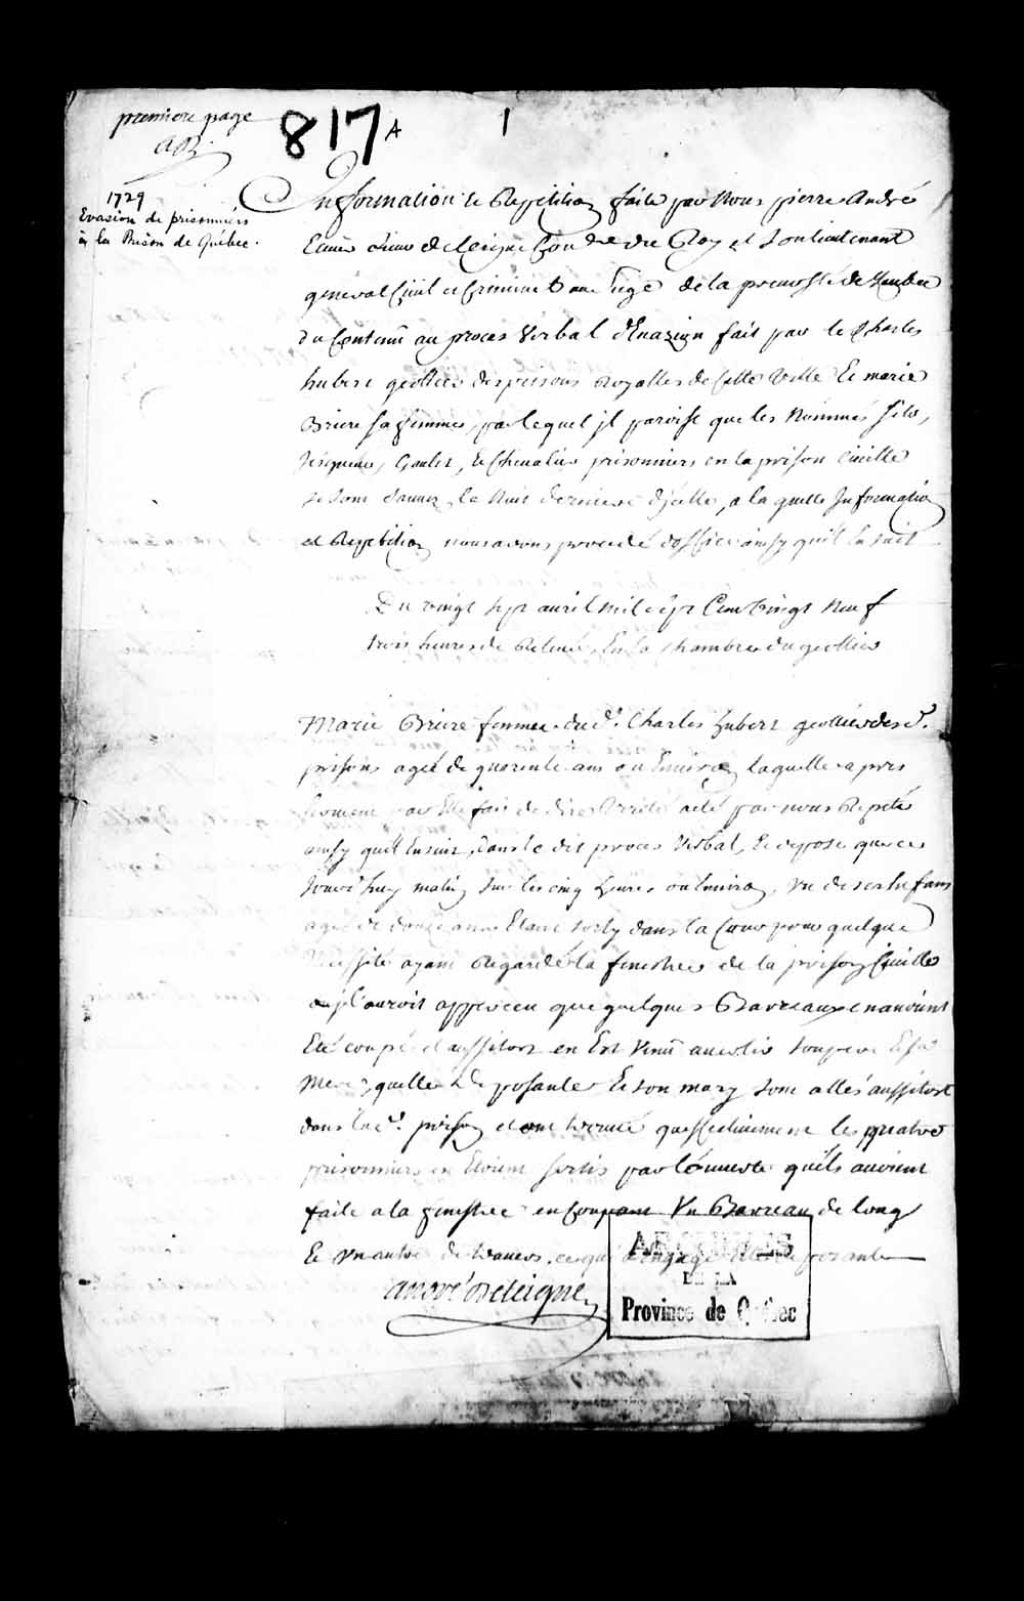 premiere page
817 A
1
1729
Evasion de prisonniers
à la Prison de Québec.
Information & Repetition faite par Nous pierre André
Ecuier sieur de Leigne Con.er du Roy et son lieutenant
general Civil et Criminel au siege de la prevosté de Quebec
du Contenu au proces Verbal d'Evazion fait par le Sr Charles
hubert geollier des prisons Royalles de Cette Ville Et marie
Briere sa femme, par lequel jl paroist que les Nommés
Gaulet, Et Chevalier prisonniers en la prison Civille
se sont sauvez la Nuit derniere d'jcelle, a laquelle Information
et Repetition nous avons procedé d'office ainsy qu'il En suit
Du vingt sept avril mil sept Cent Vingt Neuf
trois heures de Relevée, En la Chambre du geollier
Marie Briere femme dud. Charles hubert geollier desd.
prisons agée de quarente ans ou Environ laquelle apres
serment par Elle fait de dire Verité a été par nous Repetée
ainsy quil Ensuit, dans le dit proces Verbal, Et depose que ce
jourd'huy matin sur les cinq heures ou Environ, un de ses Enfans
agé de douze ans Etant sorty dans la Cour pour quelque
Necessité ayant Regardé la fenestre de la prison Civille
jl auroit apperceu que quelques Barreaux en avoient
Eté coupé et aussitost en Est Venu avertir son pere Et sa
Mere, quelle deposante Et son mary sont allés aussitost
dans lad. prison et ont trouvé qu'effectivement les quatre
prisonniers en Etoient sortis par l'ouverture qu'ils avoient
faite a la fenestre en Coupant Un Barreau de long
Et Un autre de travers, ce qui a Engagé Elle deposante
André De Leigne
ARCHIVES
DE LA
Province de Québec